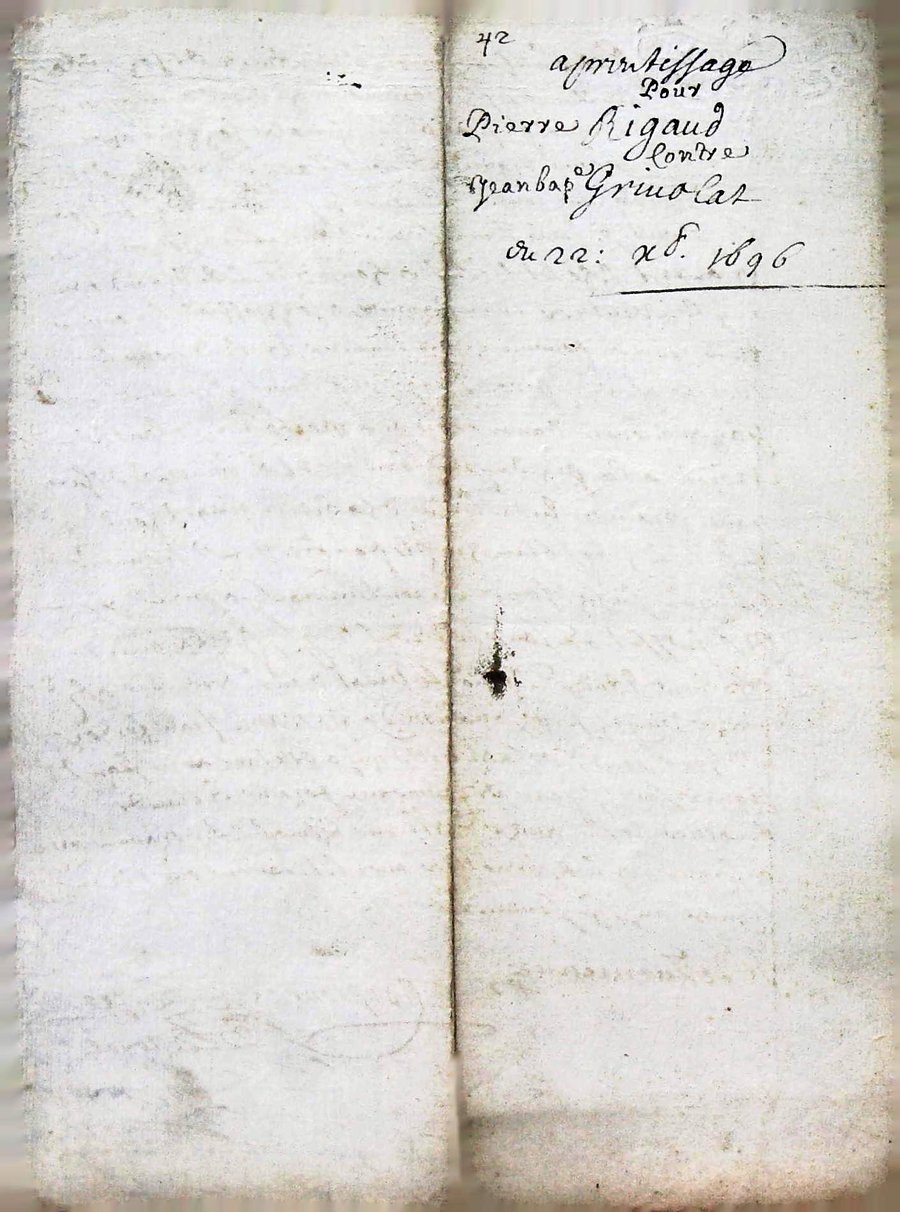 42
aprentissage
Pour
Pierre Rigaud
Contre
Jean bape Grivolat
du 22: xbr. 1696